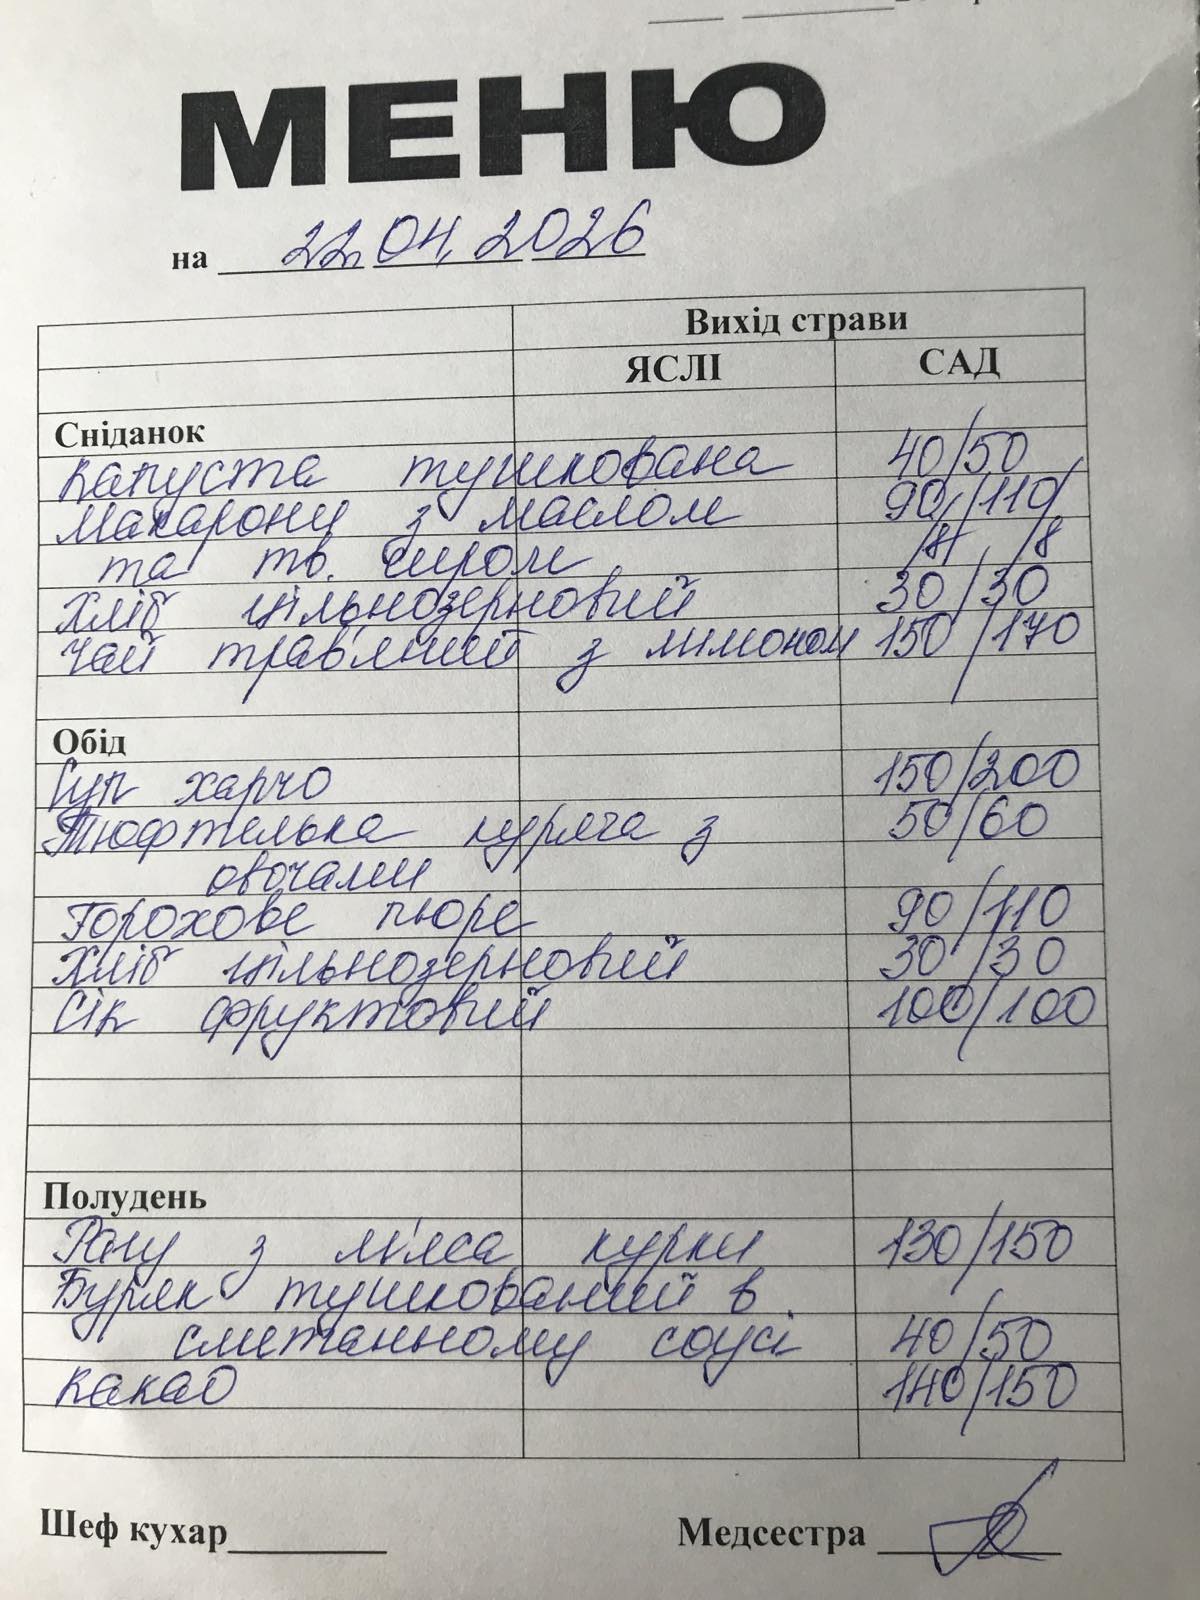 МЕНЮ
на 22.04.2026
Вихід страви
ЯСЛІ САД
Сніданок
Капуста тушкована 40/50
Макарони з маслом 90/110/
та тв. сиром /8/ /8
Хліб цільнозерновий 30/30
Чай трав'яний з лимоном 150/170
Обід
Суп харчо 150/200
Тюфтелька куряча з 50/60
овочами
Горохове пюре 90/110
Хліб цільнозерновий 30/30
Сік фруктовий 100/100
Полудень
Рагу з м'яса курки 130/150
Буряк тушкований в
сметанному соусі 40/50
Какао 140/150
Шеф кухар Медсестра